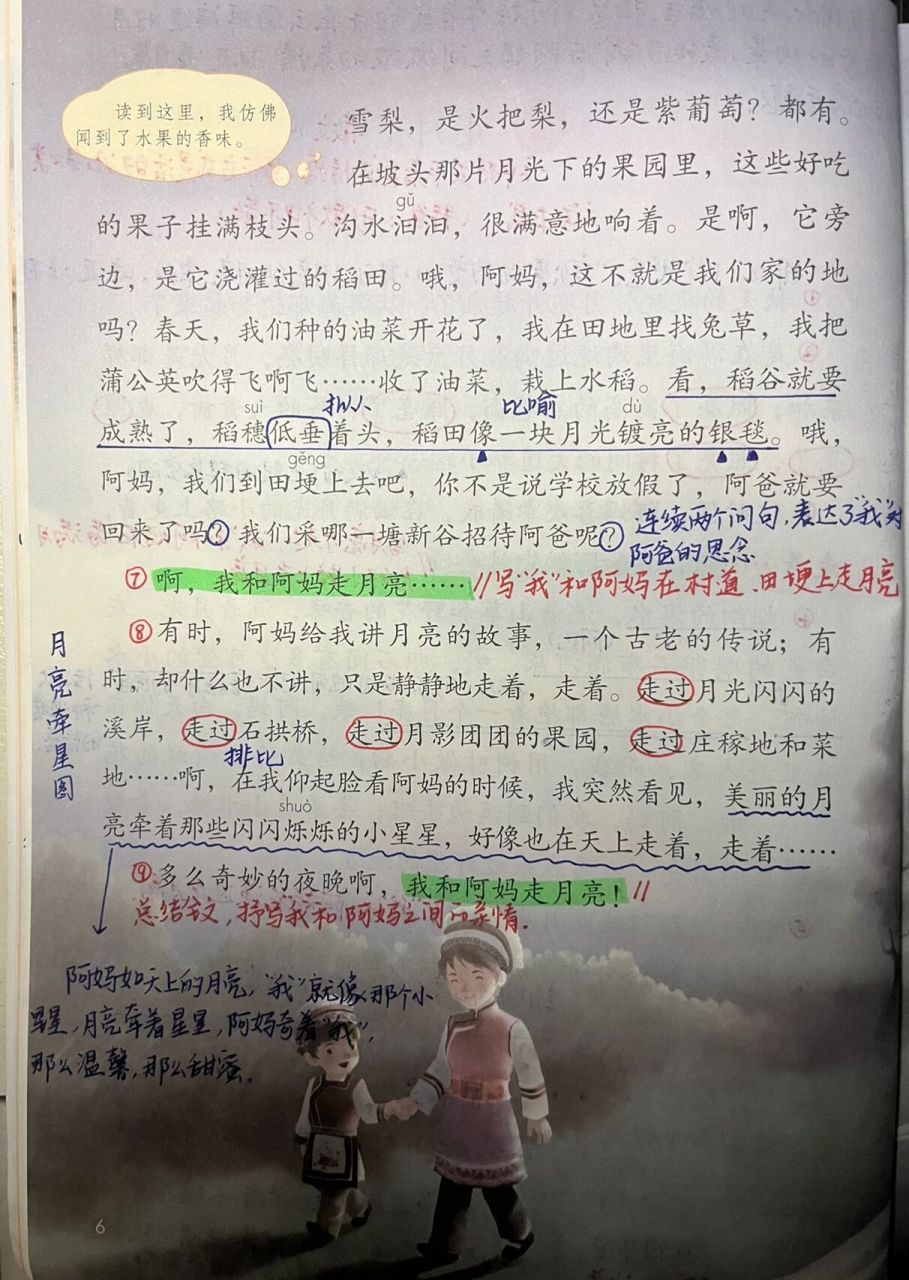 读到这里，我仿佛
闻到了水果的香味。
雪梨，是火把梨，还是紫葡萄？都有。
在坡头那片月光下的果园里，这些好吃
gǔ
的果子挂满枝头。沟水汩汩，很满意地响着。是啊，它旁
边，是它浇灌过的稻田。哦，阿妈，这不就是我们家的地
吗？春天，我们种的油菜开花了，我在田地里找兔草，我把
蒲公英吹得飞啊飞……收了油菜，栽上水稻。看，稻谷就要
suì
拟人
比喻
dù
成熟了，稻穗低垂着头，稻田像一块月光镀亮的银毯。哦，
gěng
阿妈，我们到田埂上去吧，你不是说学校放假了，阿爸就要
回来了吗？我们采哪一塘新谷招待阿爸呢？
连续两个问句，表达了“我”对
阿爸的思念
⑦啊，我和阿妈走月亮……
//写“我”和阿妈在村道、田埂上走月亮
⑧有时，阿妈给我讲月亮的故事，一个古老的传说；有
时，却什么也不讲，只是静静地走着，走着。走过月光闪闪的
溪岸，走过石拱桥，走过月影团团的果园，走过庄稼地和菜
排比
地……啊，在我仰起脸看阿妈的时候，我突然看见，美丽的月
shuò
亮牵着那些闪闪烁烁的小星星，好像也在天上走着，走着……
月亮牵星图
⑨多么奇妙的夜晚啊，我和阿妈走月亮！//
总结全文，抒写“我”和阿妈之间的亲情.
阿妈如天上的月亮，“我”就像那个小
星星，月亮牵着星星，阿妈牵着“我”，
那么温馨，那么甜蜜.
6